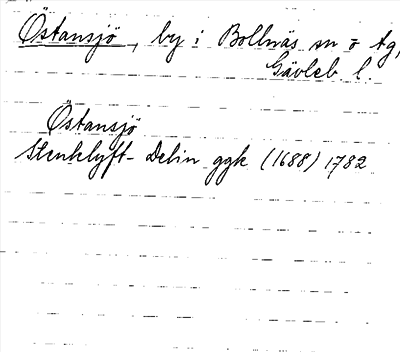 Östansjö, by i Bollnäs sn o tg,
Gävleb l.
Östansjö
Stenklyft- Delin ggk (1688) 1782